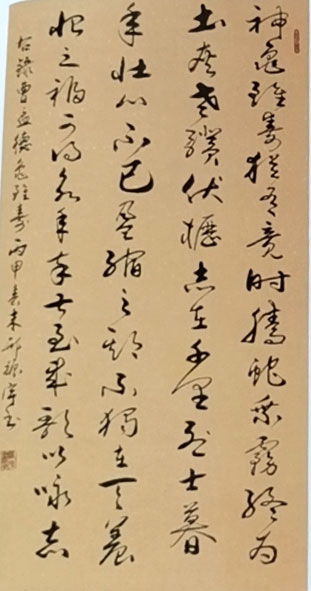 神龜雖壽猶有竟时騰蛇乘霧終为
土灰老驥伏櫪志在千里烈士暮
年壯心不已盈縮之期不獨在天養
怡之福可得永年幸甚至哉歌以咏志
右錄曹孟德龜雖壽丙申春末